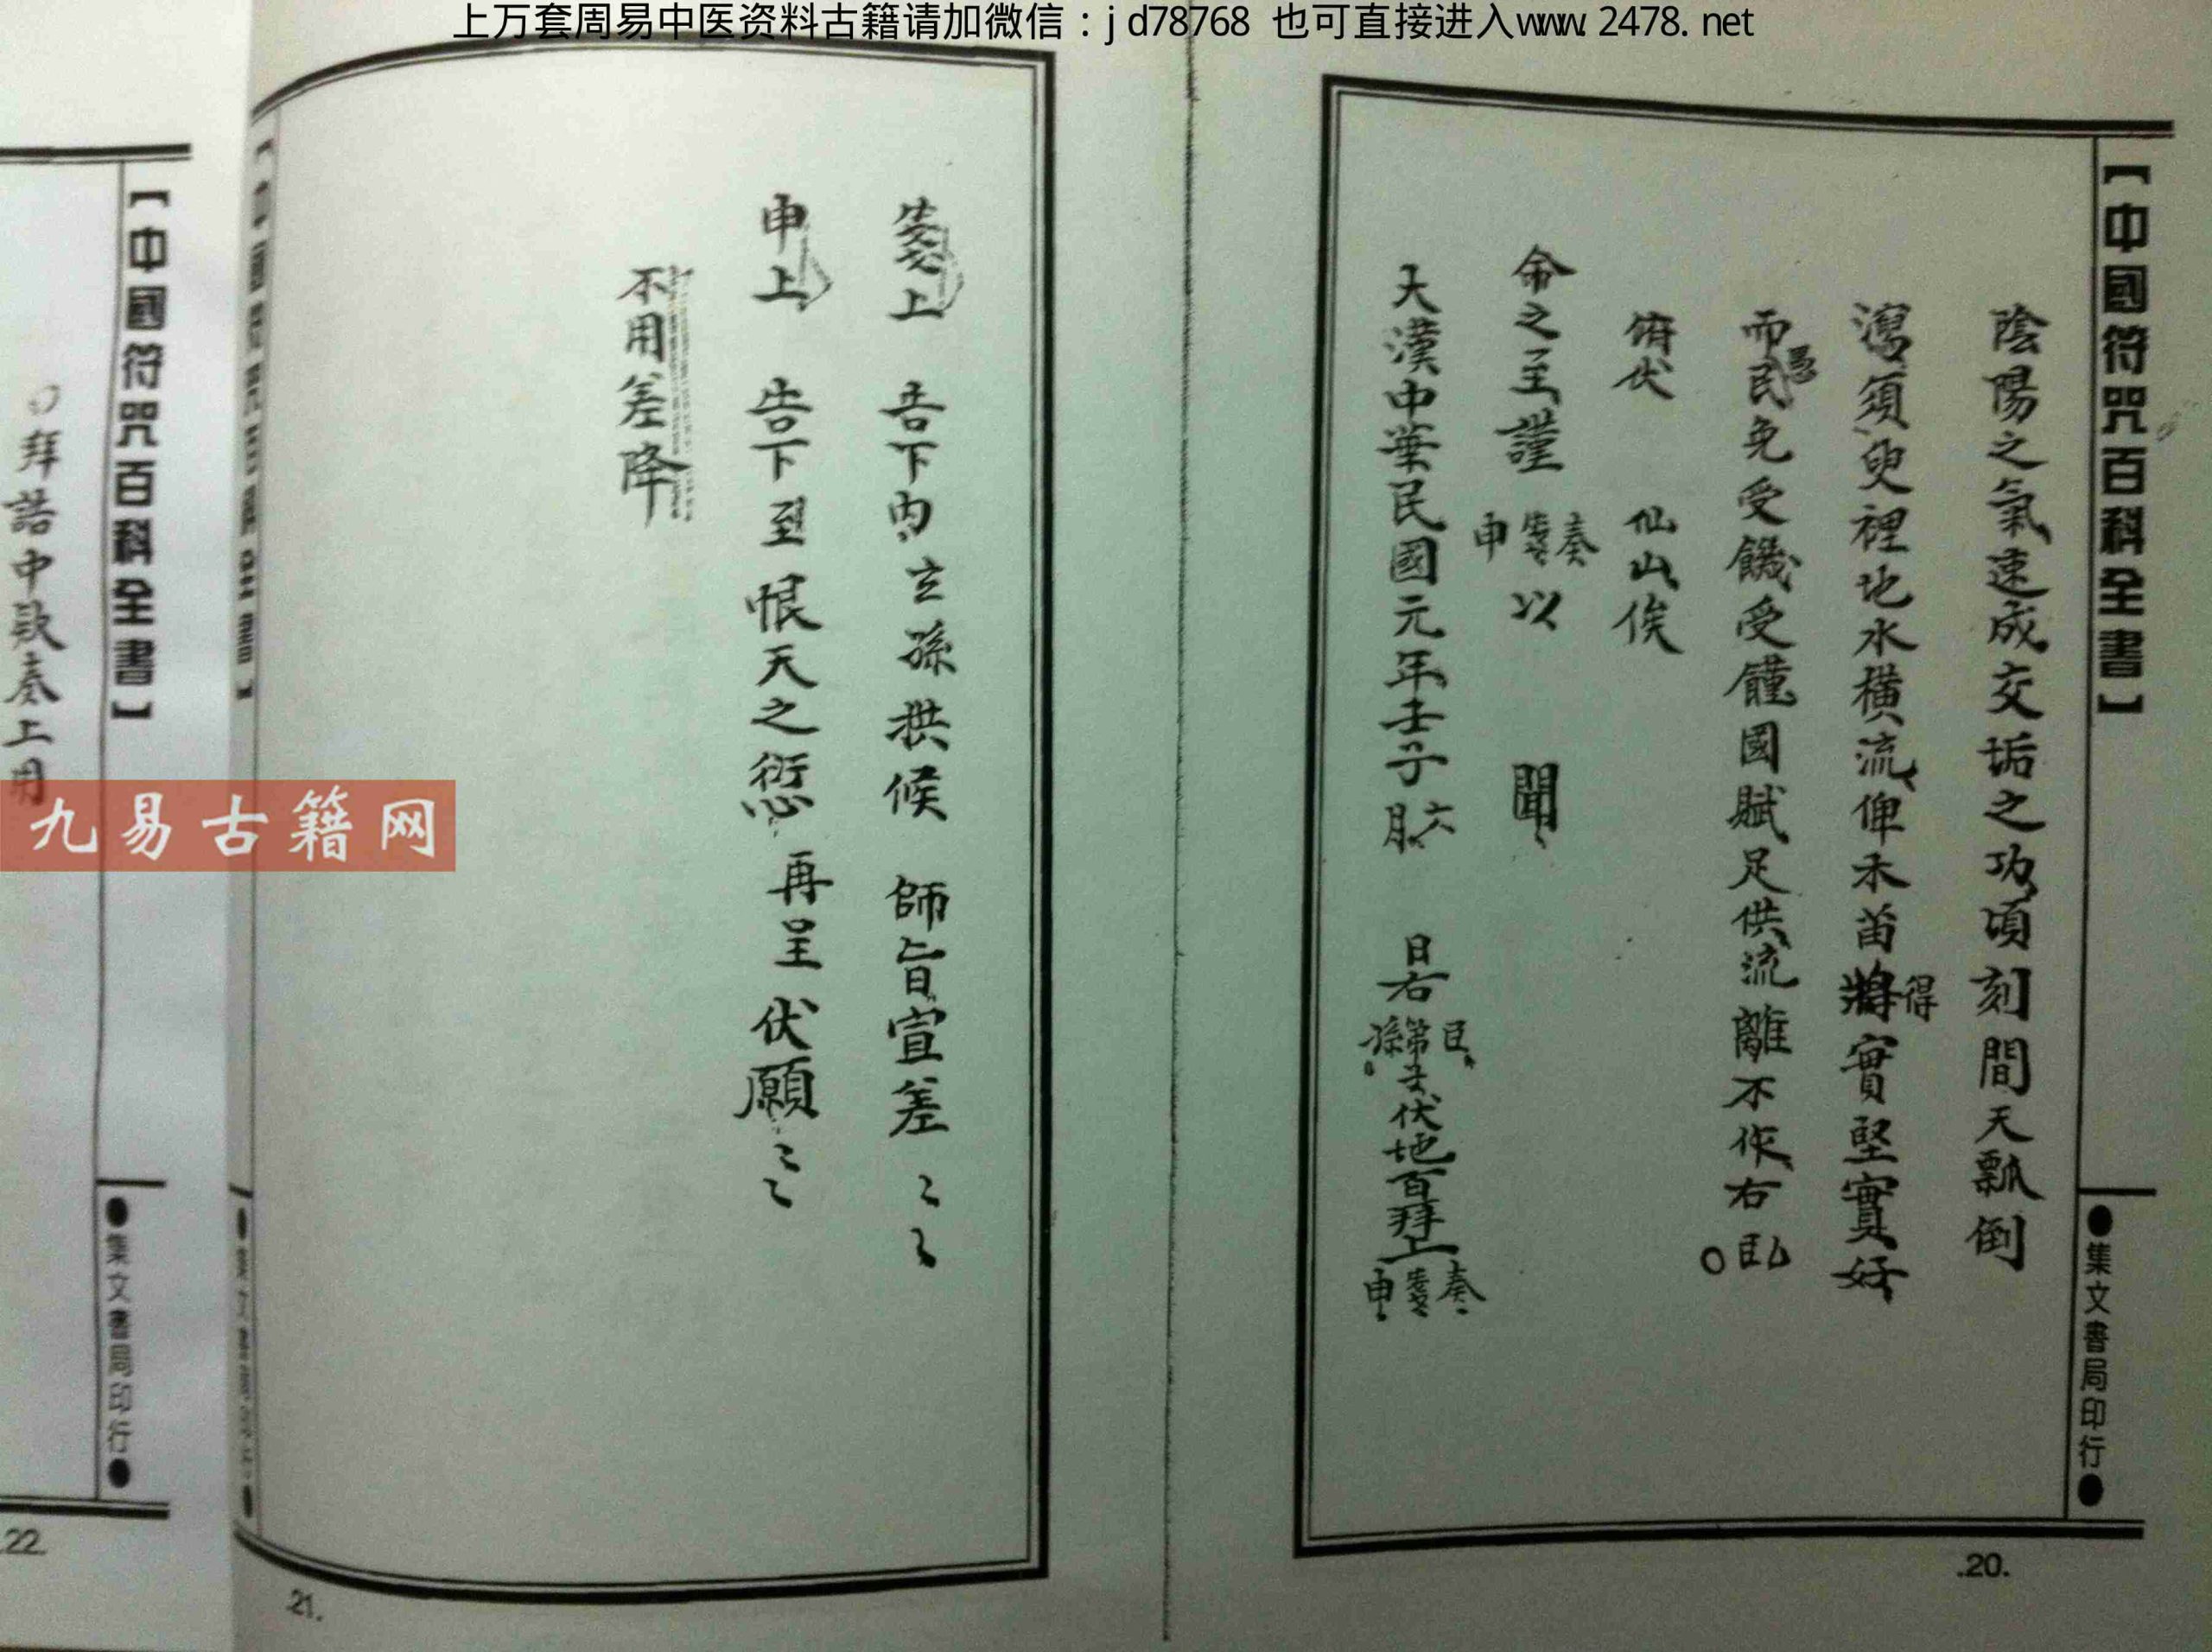 上万套周易中医资料古籍请加微信：jd78768 也可直接进入www.2478.net
【中國符咒百科全書】
●集文書局印行●
陰陽之氣速成交垢之功頃刻間天瓢倒
瀉須臾裡地水橫流俾禾苗將得實堅實好
而愚民免受饑受饉國賦足供流離不作右
俯伏 仙山俟
命之至謹 奏箋申以 聞
大漢中華民國元年壬子六月 日右臣第孫伏地百拜上奏箋申
.20.
箋上 告下內玄孫拱候 師旨宣差
申上 告下至恨天之愆再呈伏願
不用差降
.21.
【中國符咒百科全書】
●集文書局印行●
拜誥中款奏上用
.22.
九易古籍网